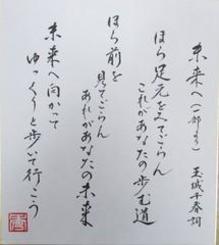 未来へ（一部より） 玉城千春詞
ほら足元をみてごらん
これがあなたの歩む道
ほら前を
見てごらん
あれがあなたの未来
未来へ向かって
ゆっくりと歩いて行こう